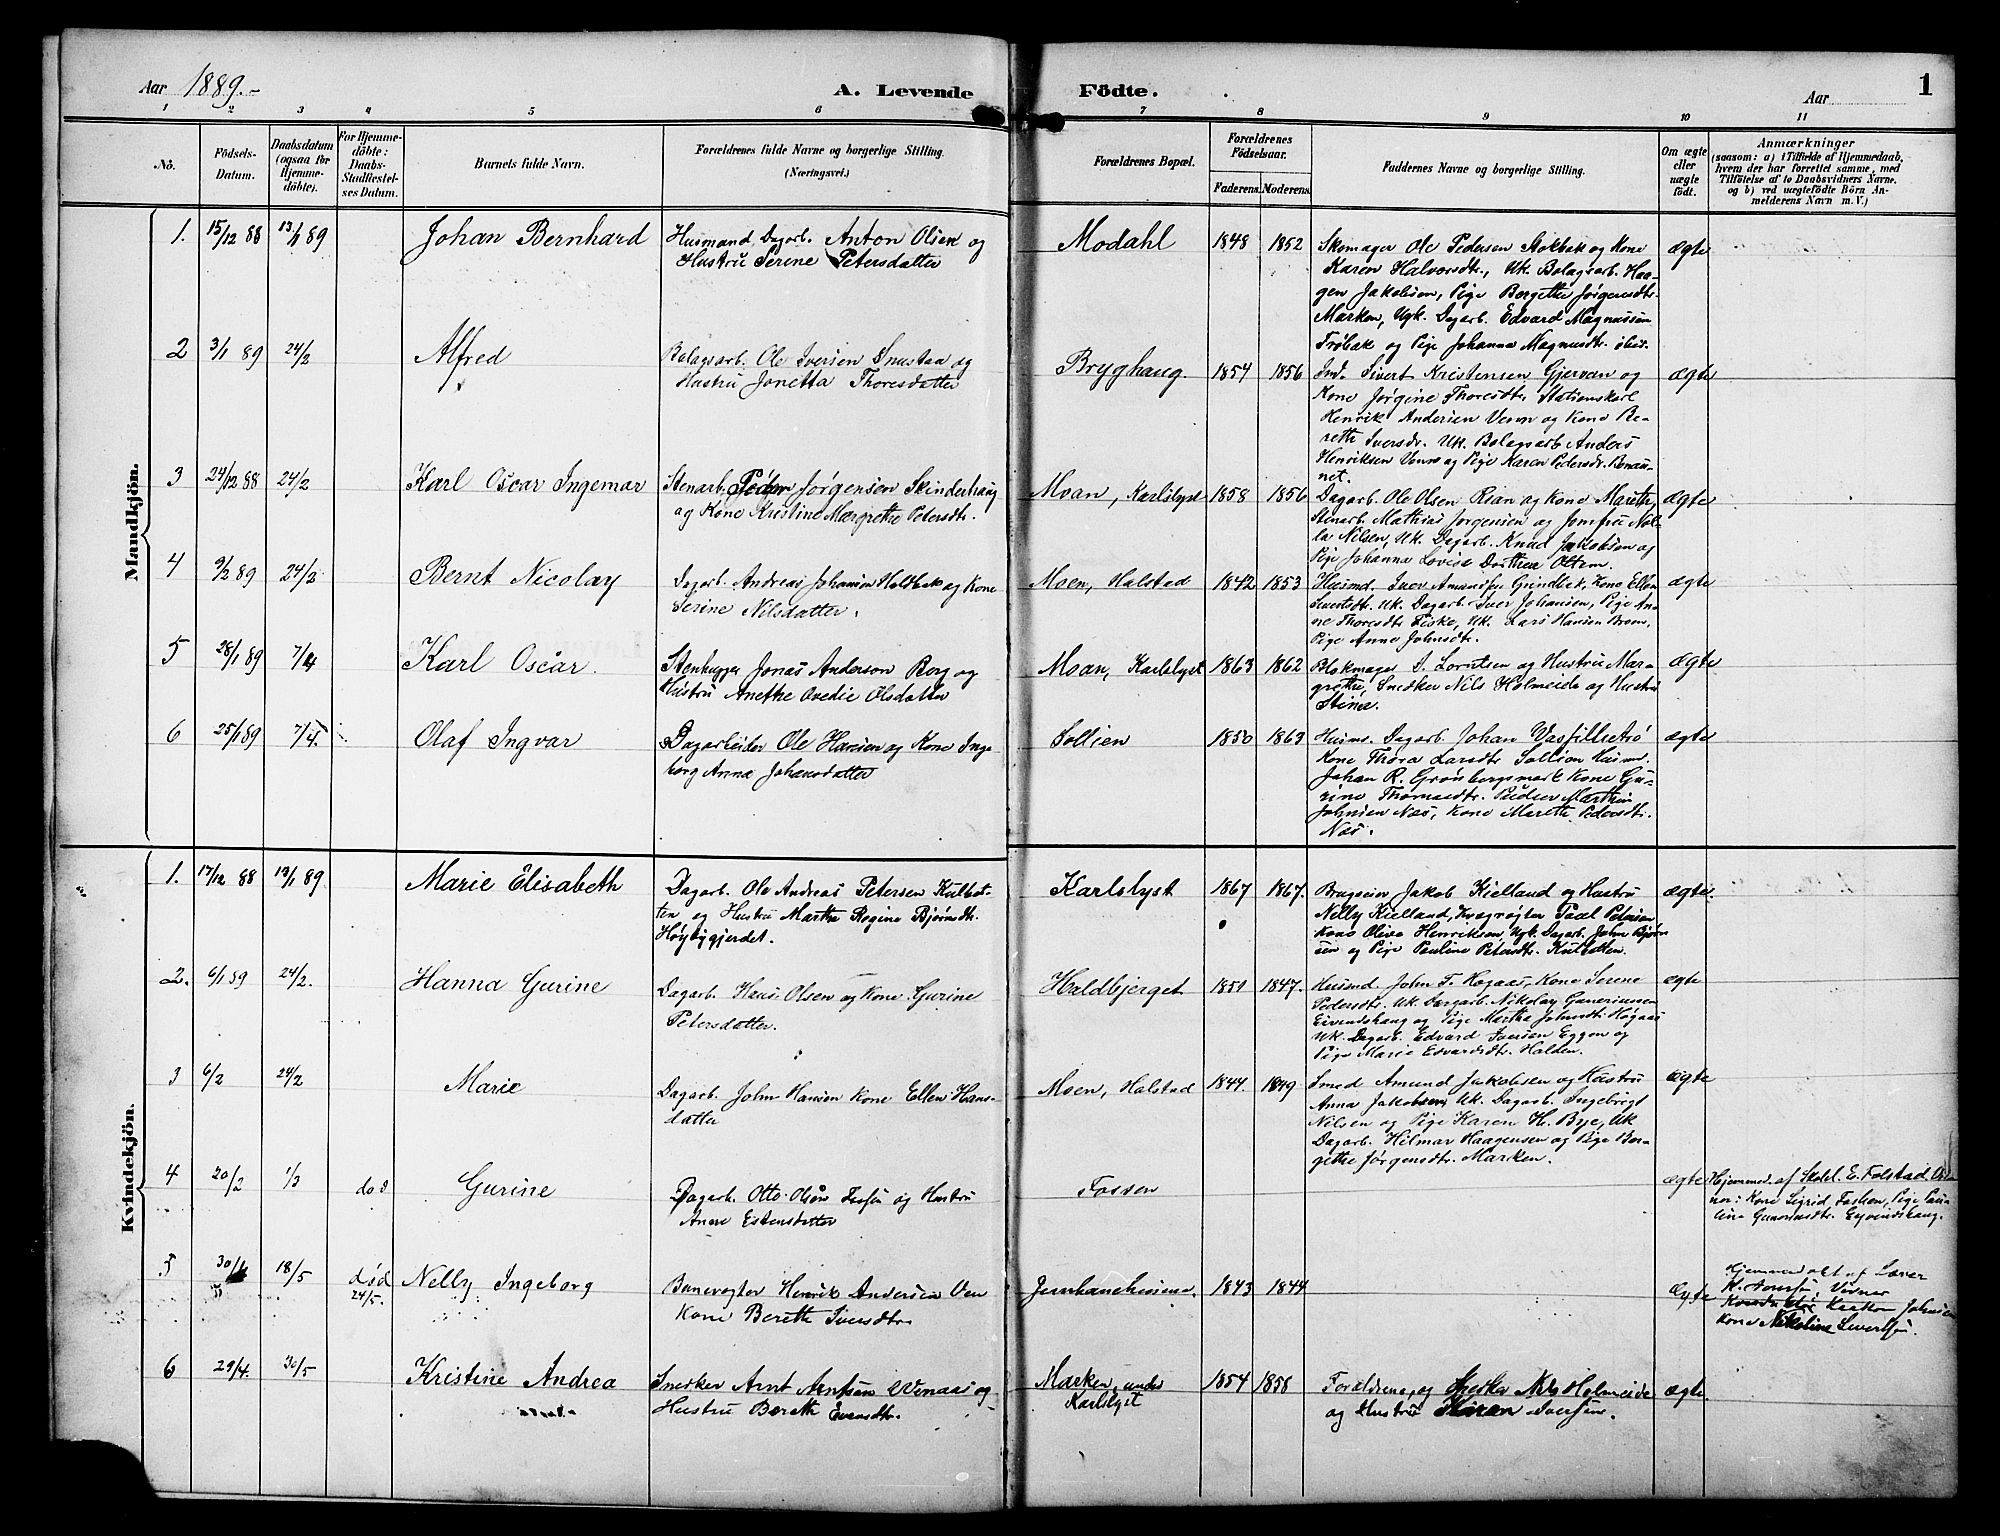 Aar 1889.-
A. Levende Födte.
Aar
1
1 2 3 4 5 6 7 8 9 10 11
No.
Födsels-
Datum.
Daabsdatum
(ogsaa for
Hjemme-
döbte).
For Hjemme-
döbte:
Daabs-
Stadfæstel-
ses Datum.
Barnets fulde Navn.
Forældrenes fulde Navne og borgerlige Stilling.
(Næringsvei.)
Forældrenes Bopæl.
Forældrenes
Födselsaar.
Faderens. Moderens.
Faddernes Navne og borgerlige Stilling.
Om ægte
eller
uægte
födt.
Anmærkninger
(saasom: a) i Tilfælde af Hjemmedaab,
hvem der har forrettet samme, med
Tilföielse af to Daabsvidners Navne,
og b) ved uægtefödte Börn An-
melderens Navn m.V.)
Mandkjön.
1. 15/12 88 13/1 89 Johan Bernhard
Husmand, Dagarb. Anton Olsen og
Hustru Serine Petersdatter
Modahl 1848 1852
Skomager Ole Pedersen Stokbak og Kone
Karen Halvorsdtr., Uk. Bolagsarb. Haa-
gen Jakobsen, Pige Borgethe Jørgensdtr.
Marken, Ugk. Dagarb. Edvard Magnussen
Trøbak og Pige Johanna Magnusdtr. ibid.
ægte
2 3/1 89 24/2 Alfred
Bolagsarb. Ole Iversen Snustaa og
Hustru Jonetta Thoresdatter
Bryghaug. 1854 1856
Ind. Sivert Kristensen Gjervan og
Kone Jørgine Thoresdtr Stationskarl
Henrik Andersen Venn og Kone Be-
rethe Iversdr. Uk. Bolagsarb Anders
Henriksen Venn og Pige Karen Pedersdr.
net.
ægte
3 24/12 88 24/2 Karl Oscar Ingemar
Stenarb. Peder Jørgensen Skinderhaug
og Kone Kristine Margrethe Petersdtr.
Moan, Karlslyst 1858 1856
Dagarb. Ole Olsen Rian og Kone Marethe,
Stenarb. Mathias Jørgensen og Jomfru Nil-
la Nilsen, Uk. Dagarb. Knud Jakobsen og
Pige Johanna Lovise Dorthea Oltem.
ægte
4 9/2 89 24/2 Bernt Nicolay
Dagarb. Andreas Johansen Holdbak og Kone
Serine Nilsdatter.
Moen, Halstad 1842 1853
Husmd. Iver Amundsen Grindbak, Kone Ellen
Sivertsdtr. Uk. Dagarb. Iver Johansen, Pige An-
ne Thoresdtr Fiske, Uk. Lars Hansen Broen,
Pige Anne Johnsdtr.
ægte
5 28/1 89 7/4 Karl Oscar.
Stenhugger Jonas Anderson Borg og
Hustru Anethe Ovedie Olsdatter
Moan, Karlslyst 1863 1862
Blokmager S. Lorntsen og Hustru Mar-
grethe, Snedker Nils Holmeide og Hustru
Stine.
ægte
6 25/1 89 7/4. Olaf Ingvar
Dagarbeider Ole Hansen og Kone Inge
borg Anna Johansdatter
Sollien 1850 1863
Husm. Dagarb. Johan Vasfilletrø
Kone Thora Larsdtr Sollien Husm.
Johan R. Grønbergsmark Kone Gu-
rine Thomasdtr. Peder Martin
Johnsen Næs, Kone Marethe Pedersdtr.
Næs.
ægte
Kvindekjön.
1. 17/12 88 13/1 89. Marie Elisabeth
Dagarb. Ole Andreas Petersen Kulbot-
ten og Hustru Martha Regine Bjørnsdtr.
Høybygjerdet.
Karlslyst 1867 1867.
Brugseier Jakob Kielland og Hustru
Nelly Kielland, Kvægrøgter Paal Petersen
Kone Oliva Henriksen, Ugk. Dagarb. John Bjørn
sen og Pige Pauline Petersdtr. Kulbotten.
ægte.
2. 6/1 89 24/2. Hanna Gurine
Dagarb. Hans Olsen og Kone Gurine
Petersdatter.
Haldbjerget 1851 1847.
Husmd. John T. Høgaas, Kone Serene
Pedersdtr. Uk. Dagarb. Nikolay Guneriussen
Eivendshaug og Pige Martha Johnsdtr. Høgaas
Uk. Dagarb. Edvard Iversen Eggen og
Pige Marie Edvardsdtr. Halden.
ægte
3 6/2 24/2 Marie
Dagarb. John Hansen Kone Ellen Hans-
datter
Moen, Halstad 1844. 1849
Smed Amund Jakobsen og Hustru
Anna Jakobsen, Uk. Dagarb. Ingebrigt
Nilsen og Pige Karen H. Bye, Uk
Dagarb. Hilmar Haagensen og Pige Bor-
gethe Jørgensdtr. Marken.
ægte
4 20/2 1/3 død Gurine
Dagarb. Otto Olsen og Hustru
Anne Estensdatter
Fossen
ægte
Hjemmed. af Skolel. E. Folstad.
Kone Sigrid Fossen, Pige Pau-
line Gunersdtr. Eyvindshaug.
5 30/4 18/5 død
24/5. Nelly Ingeborg
Banevogter Henrik Andersen Ven
Kone Berethe Iversdtr.
Jernbanehuset 1843 1844
ægte
Hjemmedøbt af Lærer
Vidner
Johnsen
Kone Nikoline Sivertsen.
6 29/4. 30/5 Kristine Andrea
Snedker Arnt Arntsen Venaas og
Hustru Berethe Evensdtr.
Marken, under
Karlslyst 1854 1858
Forældrene, og Snedker Nils Holmeide
og Hustru Karen Iversen.
ægte.